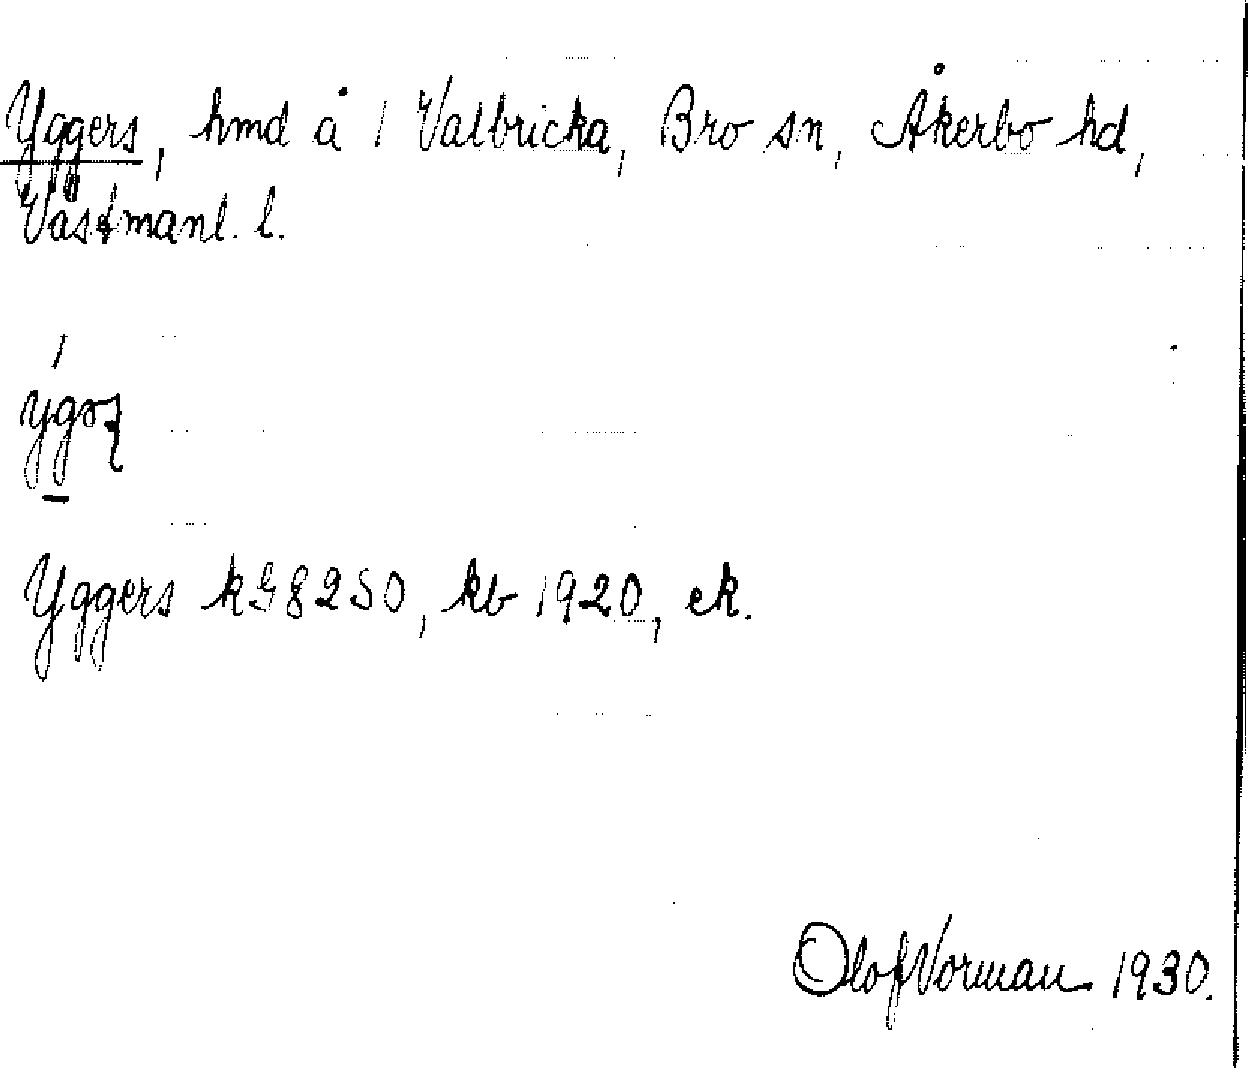 Yggers, hmd å 1 Valbricka, Bro sn, Åkerbo hd,
Västmanl. l.
Yggers k G8250, kb 1920, ek.
Olof Vorman 1930.